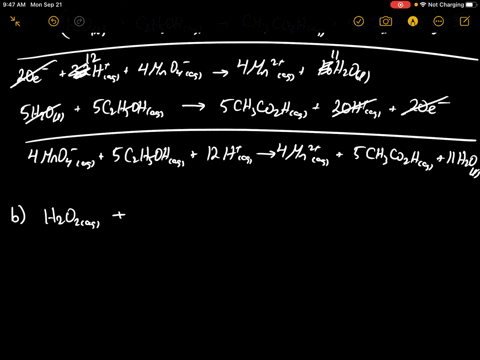 9:47 AM Mon Sep 21
Not Charging
20e⁻ + 12 H⁺(aq) + 4MnO₄⁻(aq) → 4Mn²⁺(aq) + 11 H₂O(l)
5H₂O(l) + 5C₂H₅OH(aq) → 5CH₃CO₂H(aq) + 20H⁺(aq) + 20e⁻
4MnO₄⁻(aq) + 5C₂H₅OH(aq) + 12H⁺(aq) → 4Mn²⁺(aq) + 5CH₃CO₂H(aq) + 11H₂O(l)
b) H₂O₂(aq) +